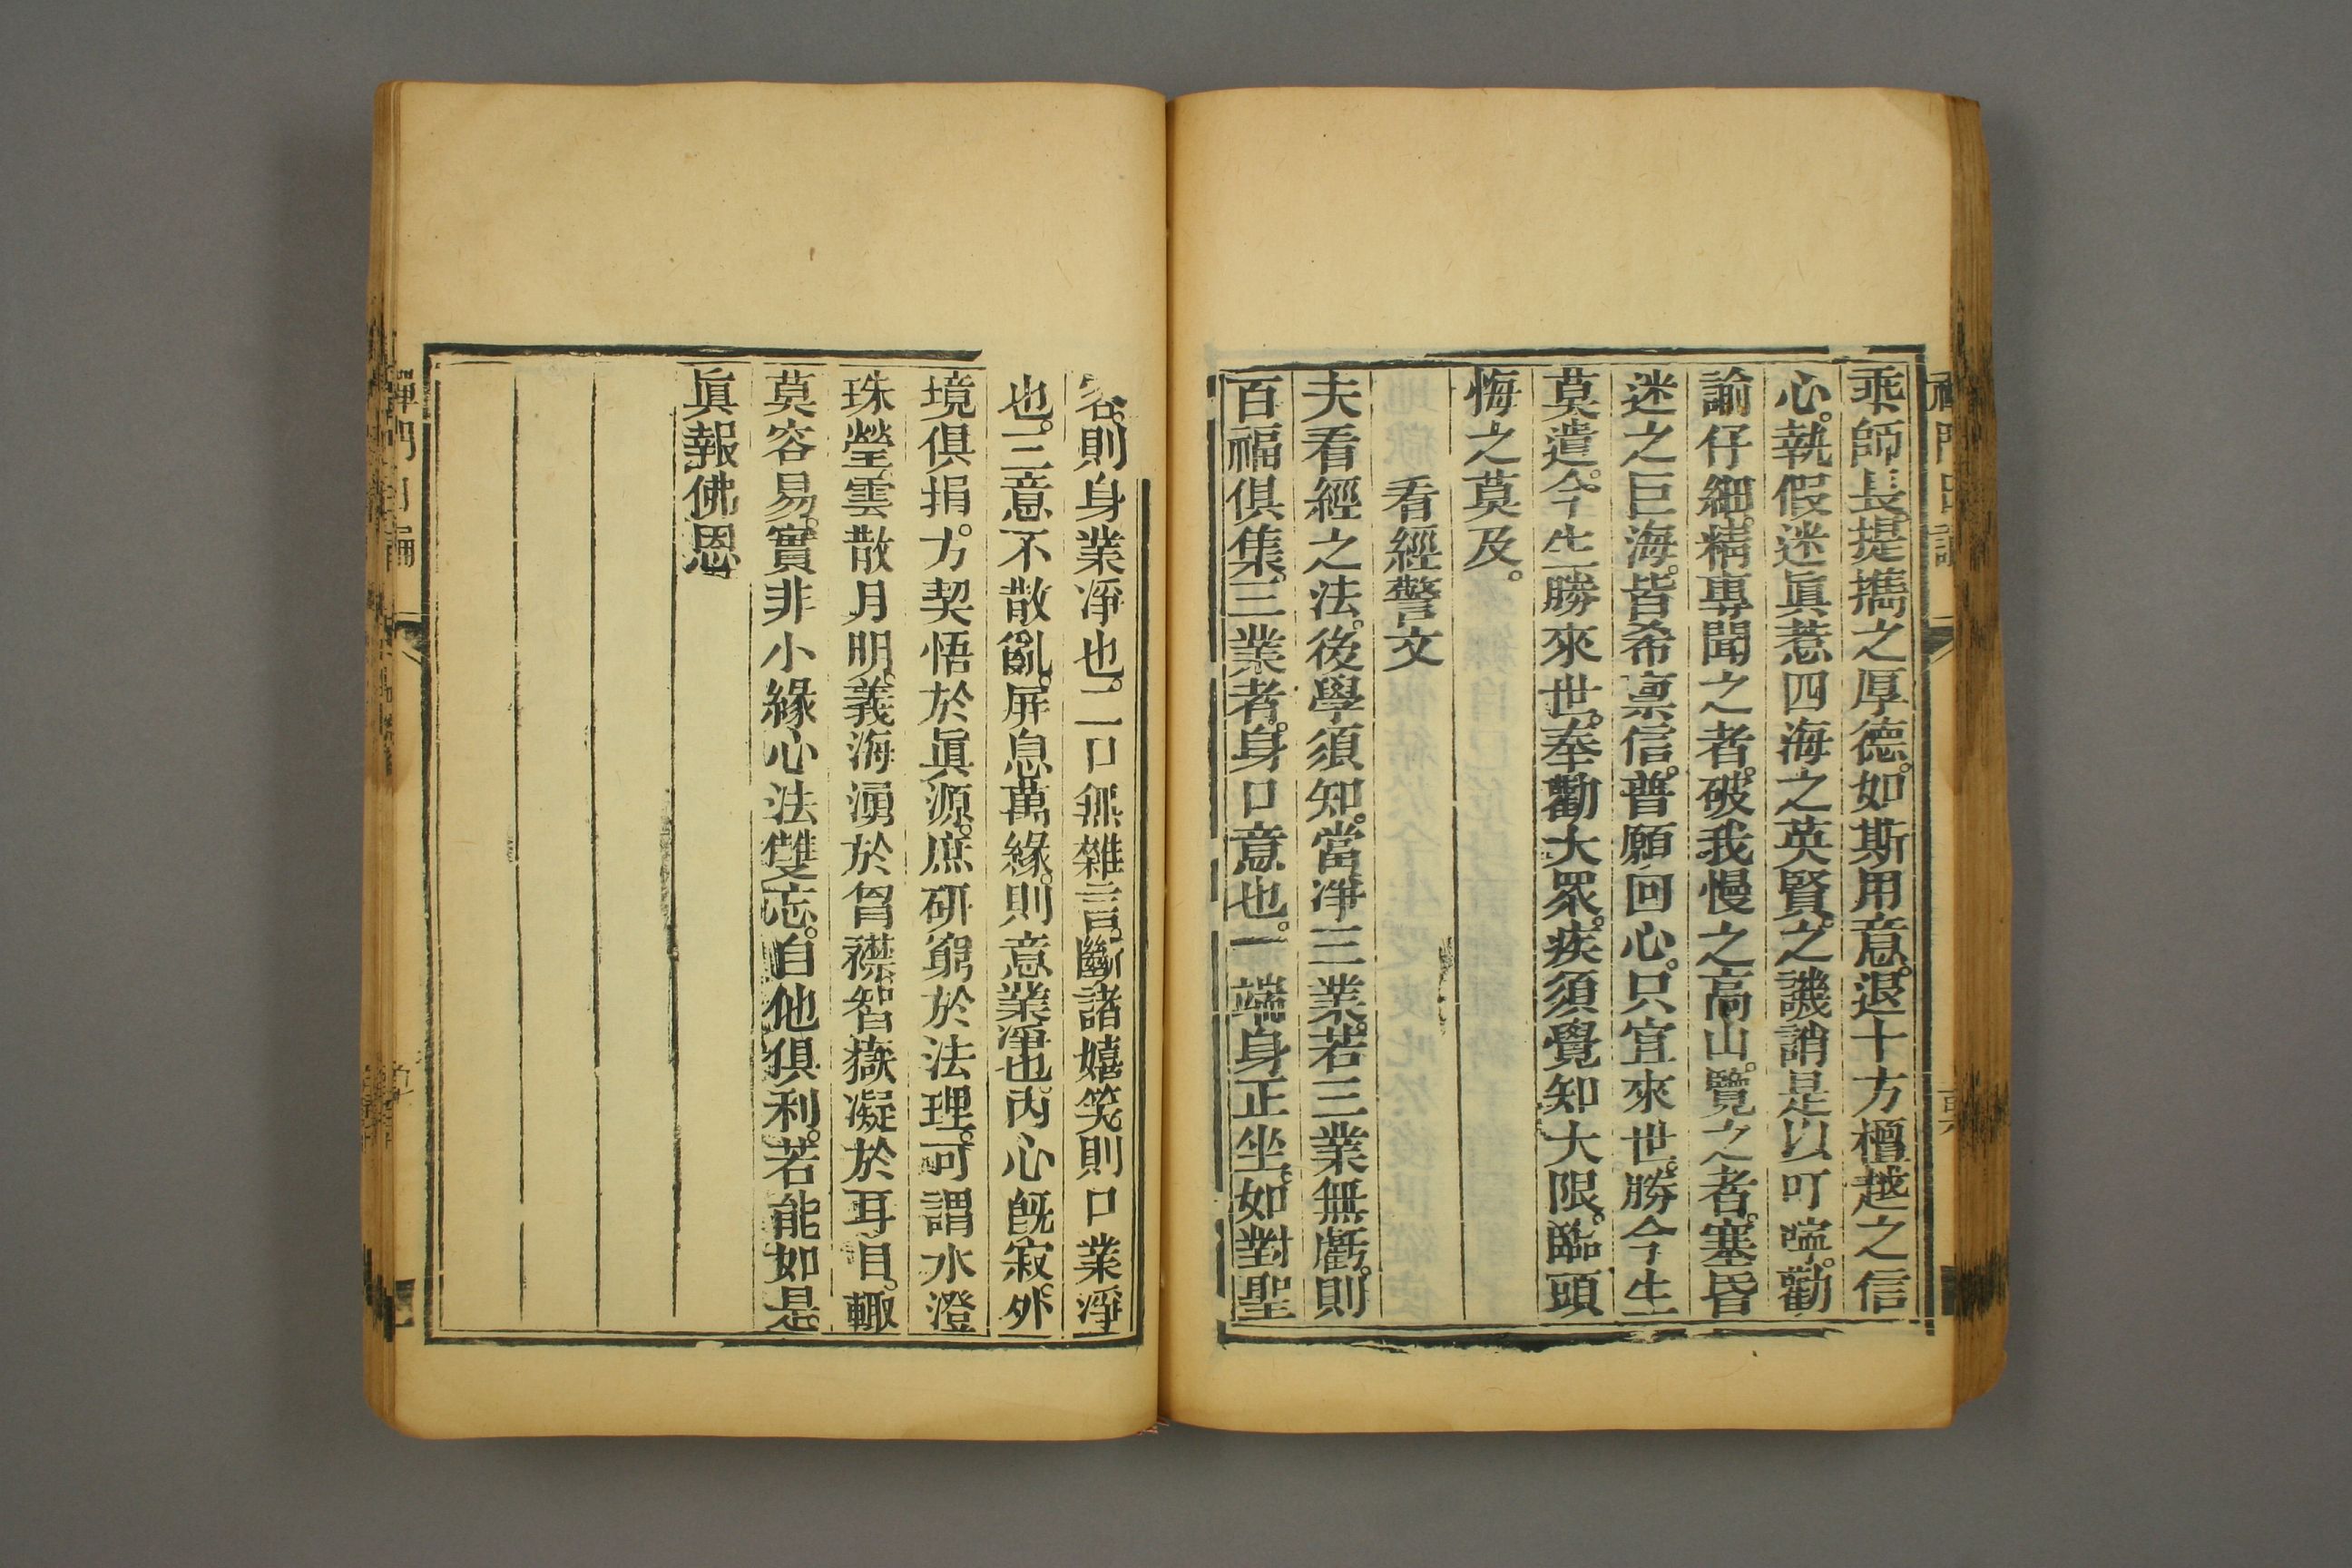 乘師長。提攜之厚德。如斯用意。退十方檀越之信
心。執假迷眞。惹四海之英賢。之譏誚。是以叮嚀。勸
諭仔細。精專聞之者。破我慢之高山。覽之者。塞昏
迷之巨海。皆希稟信。普願回心。只宜來世。勝今生
莫遣。今生勝來世。奉勸大眾。疾須覺知大限。臨頭
悔之莫及。
看經警文
夫看經之法。後學須知。當淨三業。若三業無虧。則
百福俱集。三業者。身口意也。一端身正坐。如對聖
容。則身業淨也。二口無雜言。斷諸嬉笑。則口業淨
也。三意不散亂。屏息萬緣。則意業淨也。內心旣寂。外
境俱捐。方契悟於眞源。庶研窮於法理。可謂水澄
珠瑩。雲散月明。義海湧於胷襟。智嶽凝於耳目。輙
莫容易。實非小緣。心法雙忘。自他俱利。若能如是。
眞報佛恩